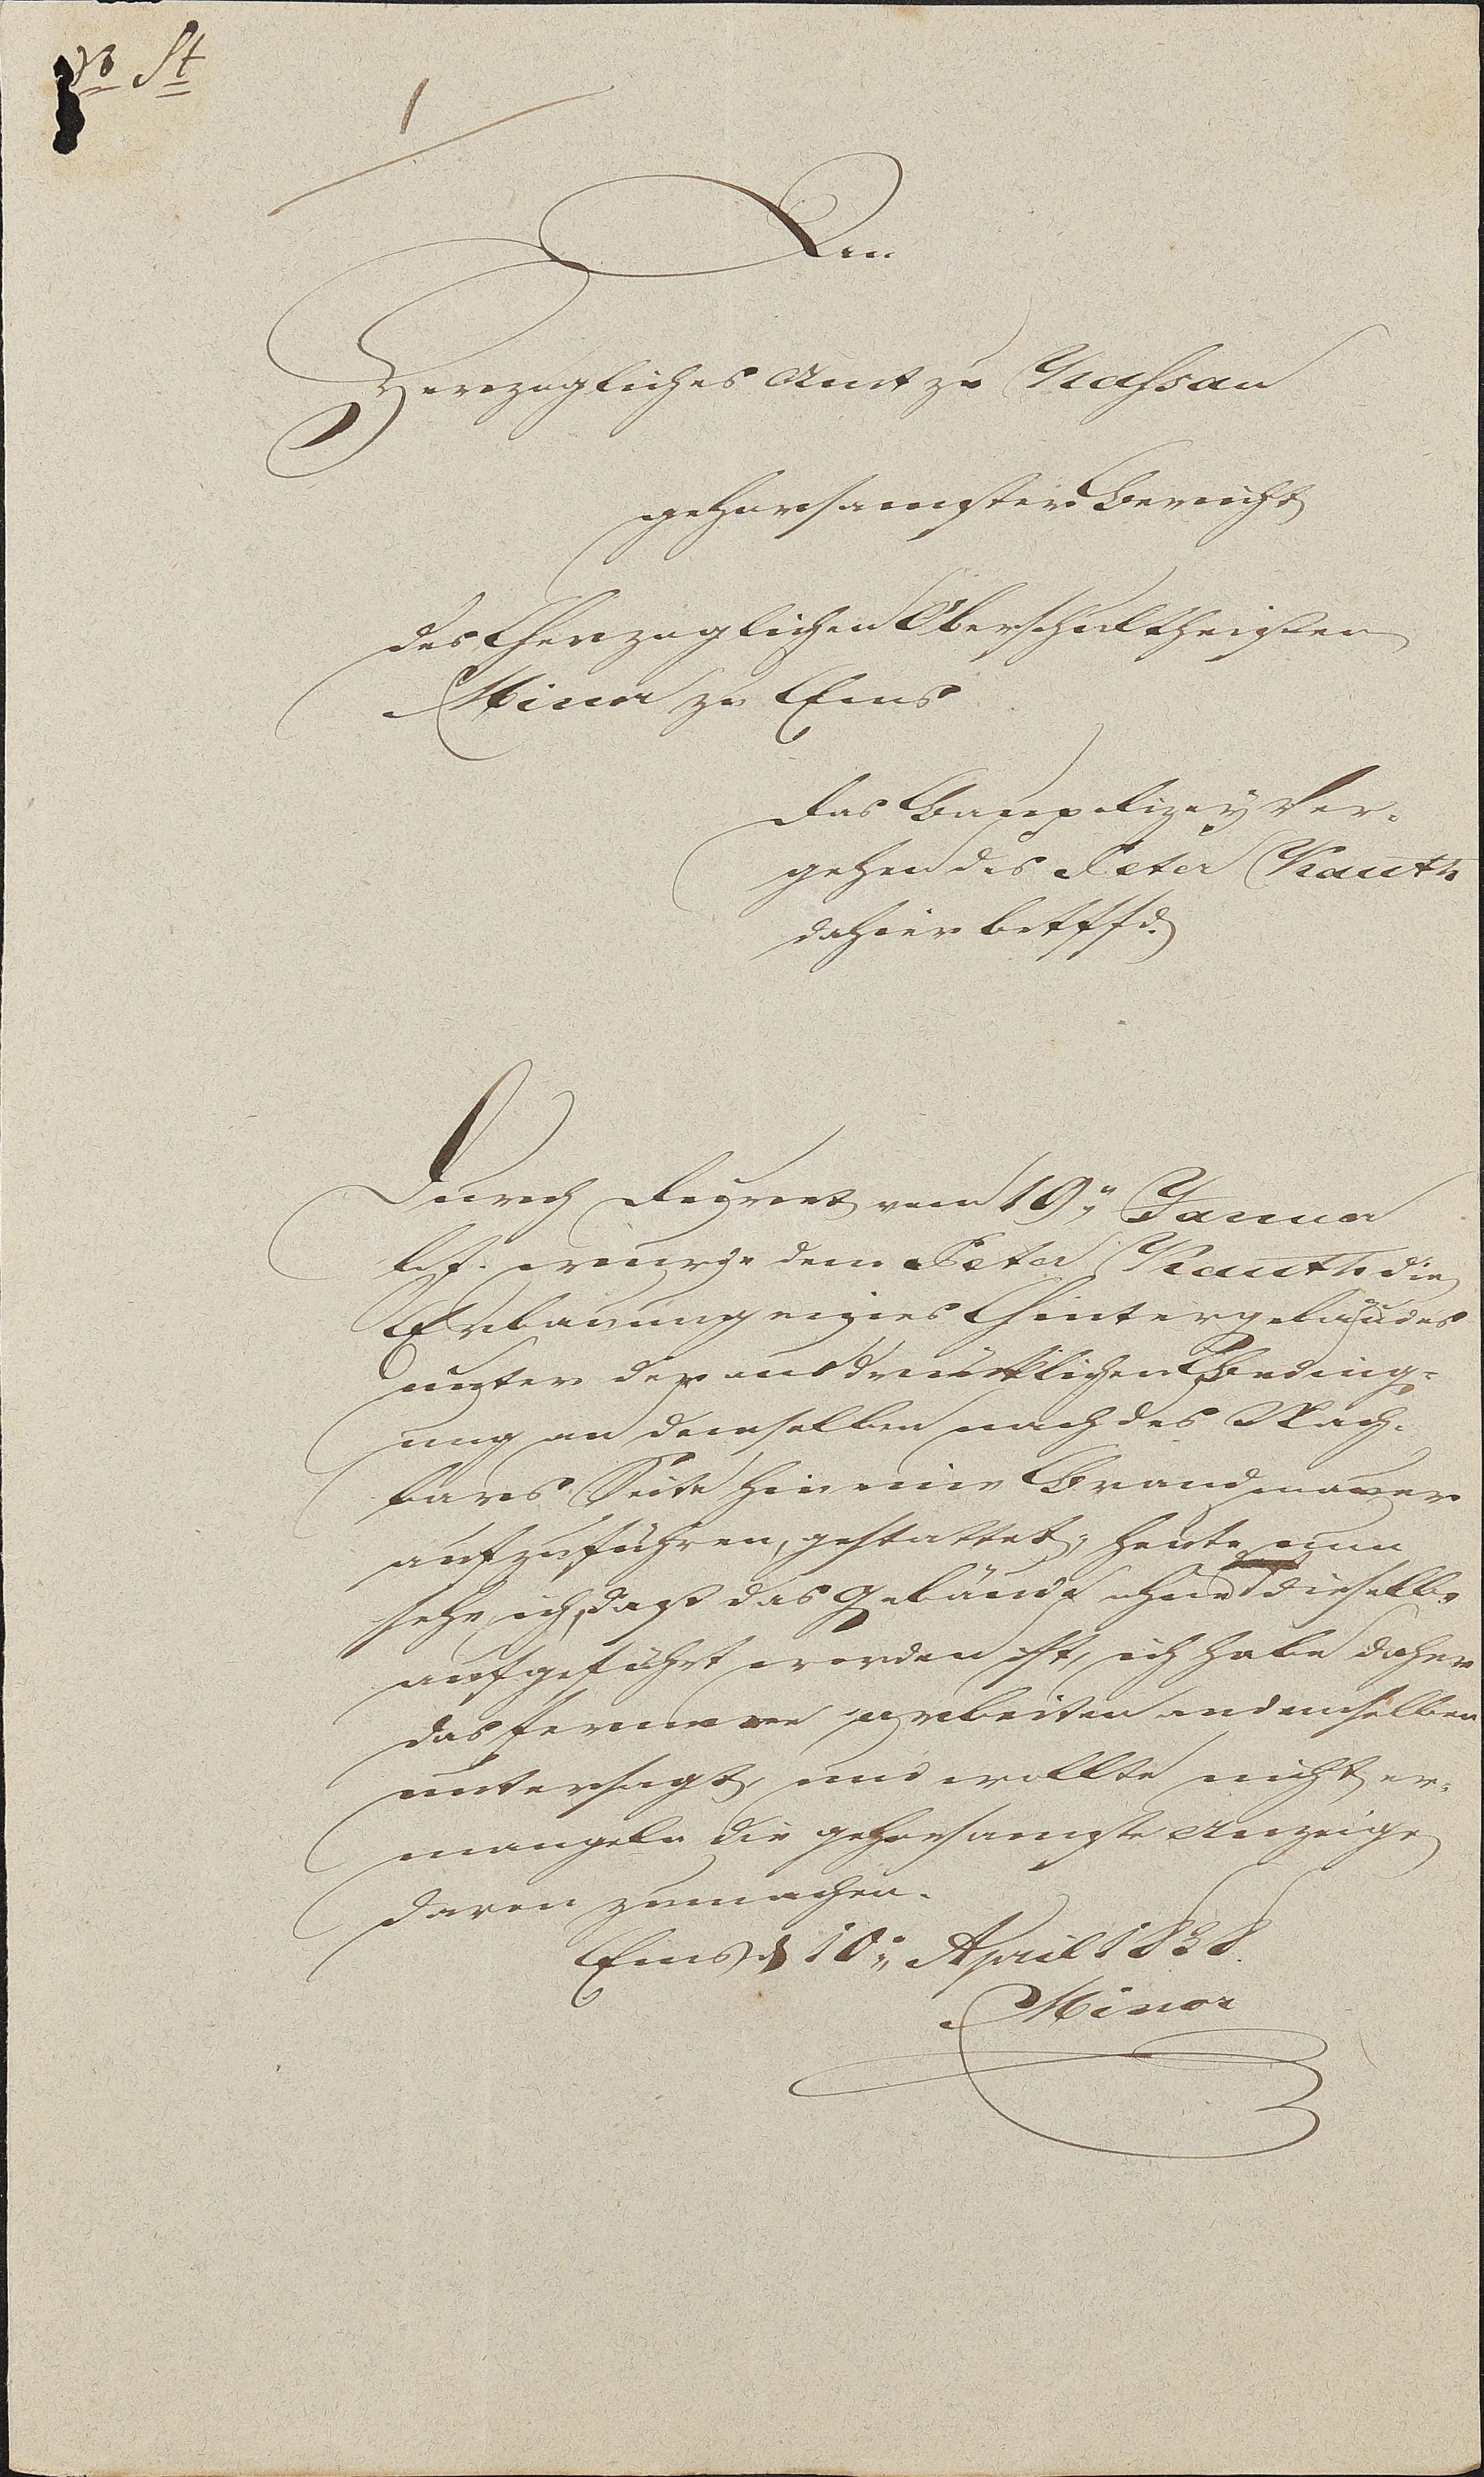 St
1
An
Herzogliches Amt zu Nassau
gehorsamster Bericht
des Herzoglichen Oberschultheißen
Minor zu Ems
das Baupolizey Ver-
gehen des Peter Kauth
dahier betffd.
Durch Decret vom 19n Januar
l. J. wurde dem Peter Kauth die
Erbauung eines Hintergebäudes
unter der ausdrücklichen Beding-
ung an demselben nach des Nach-
bars Seite hin eine Brandmauer
aufzuführen, gestattet; heute nun
sehe ich, daß das Gebäude ohne dieselbe
aufgeführt worden ist, ich habe daher
das fernere arbeiten an demselben
untersagt, und wollte nicht er-
mangeln die gehorsamste Anzeige
davon zu machen.
Ems d 10n April 1838.
Minor